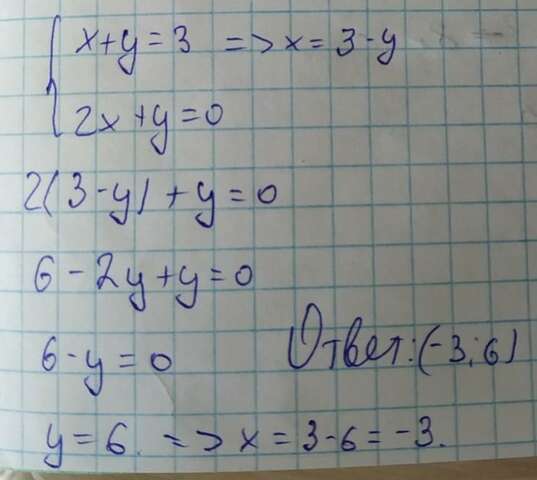 x+y=3 => x=3-y
2x+y=0
2(3-y)+y=0
6-2y+y=0
6-y=0 Ответ: (-3; 6)
y=6. => x=3-6=-3.